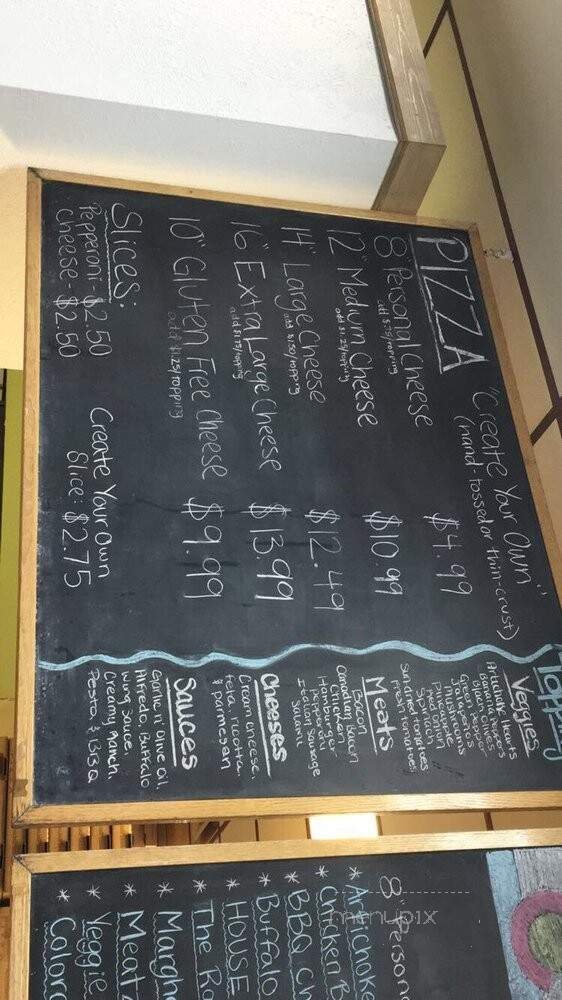 PIZZA "Create Your Own"
(hand tossed or thin-crust)
8" Personal Cheese $4.99
add $.75/topping
12" Medium Cheese $10.99
add $1.25/topping
14" Large Cheese $12.49
add $1.50/topping
16" Extra Large Cheese $13.99
add $1.75/topping
10" Gluten Free Cheese $9.99
add $1.25/topping
Slices:
Pepperoni - $2.50
Cheese - $2.50
Create Your Own
Slice: $2.75
Topping
Veggies
Artichoke Hearts
Banana Peppers
Black Olives
Green Pepper
Jalapenos
Mushrooms
Onions
Pineapple
Spinach
Sundried tomatoes
Fresh tomatoes
Meats
Bacon
Canadian Bacon
Chicken
Hamburger
Pepperoni
Italian Sausage
Salami
Cheeses
Cream cheese,
feta, ricotta,
& parmesan
Sauces
Garlic n' Olive Oil,
Alfredo, Buffalo
Wing Sauce,
Creamy Ranch,
Pesto, & BBQ
8" Person
* Artichoke
* Chicken B
* BBQ Ch
* Buffalo
* HOUSE
* The Ro
* Margh
* Meat
* Veggie
* Color
menupix